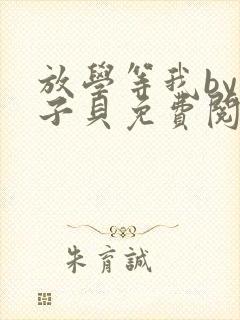 放學等我by
子貝免費閱
朱育誠